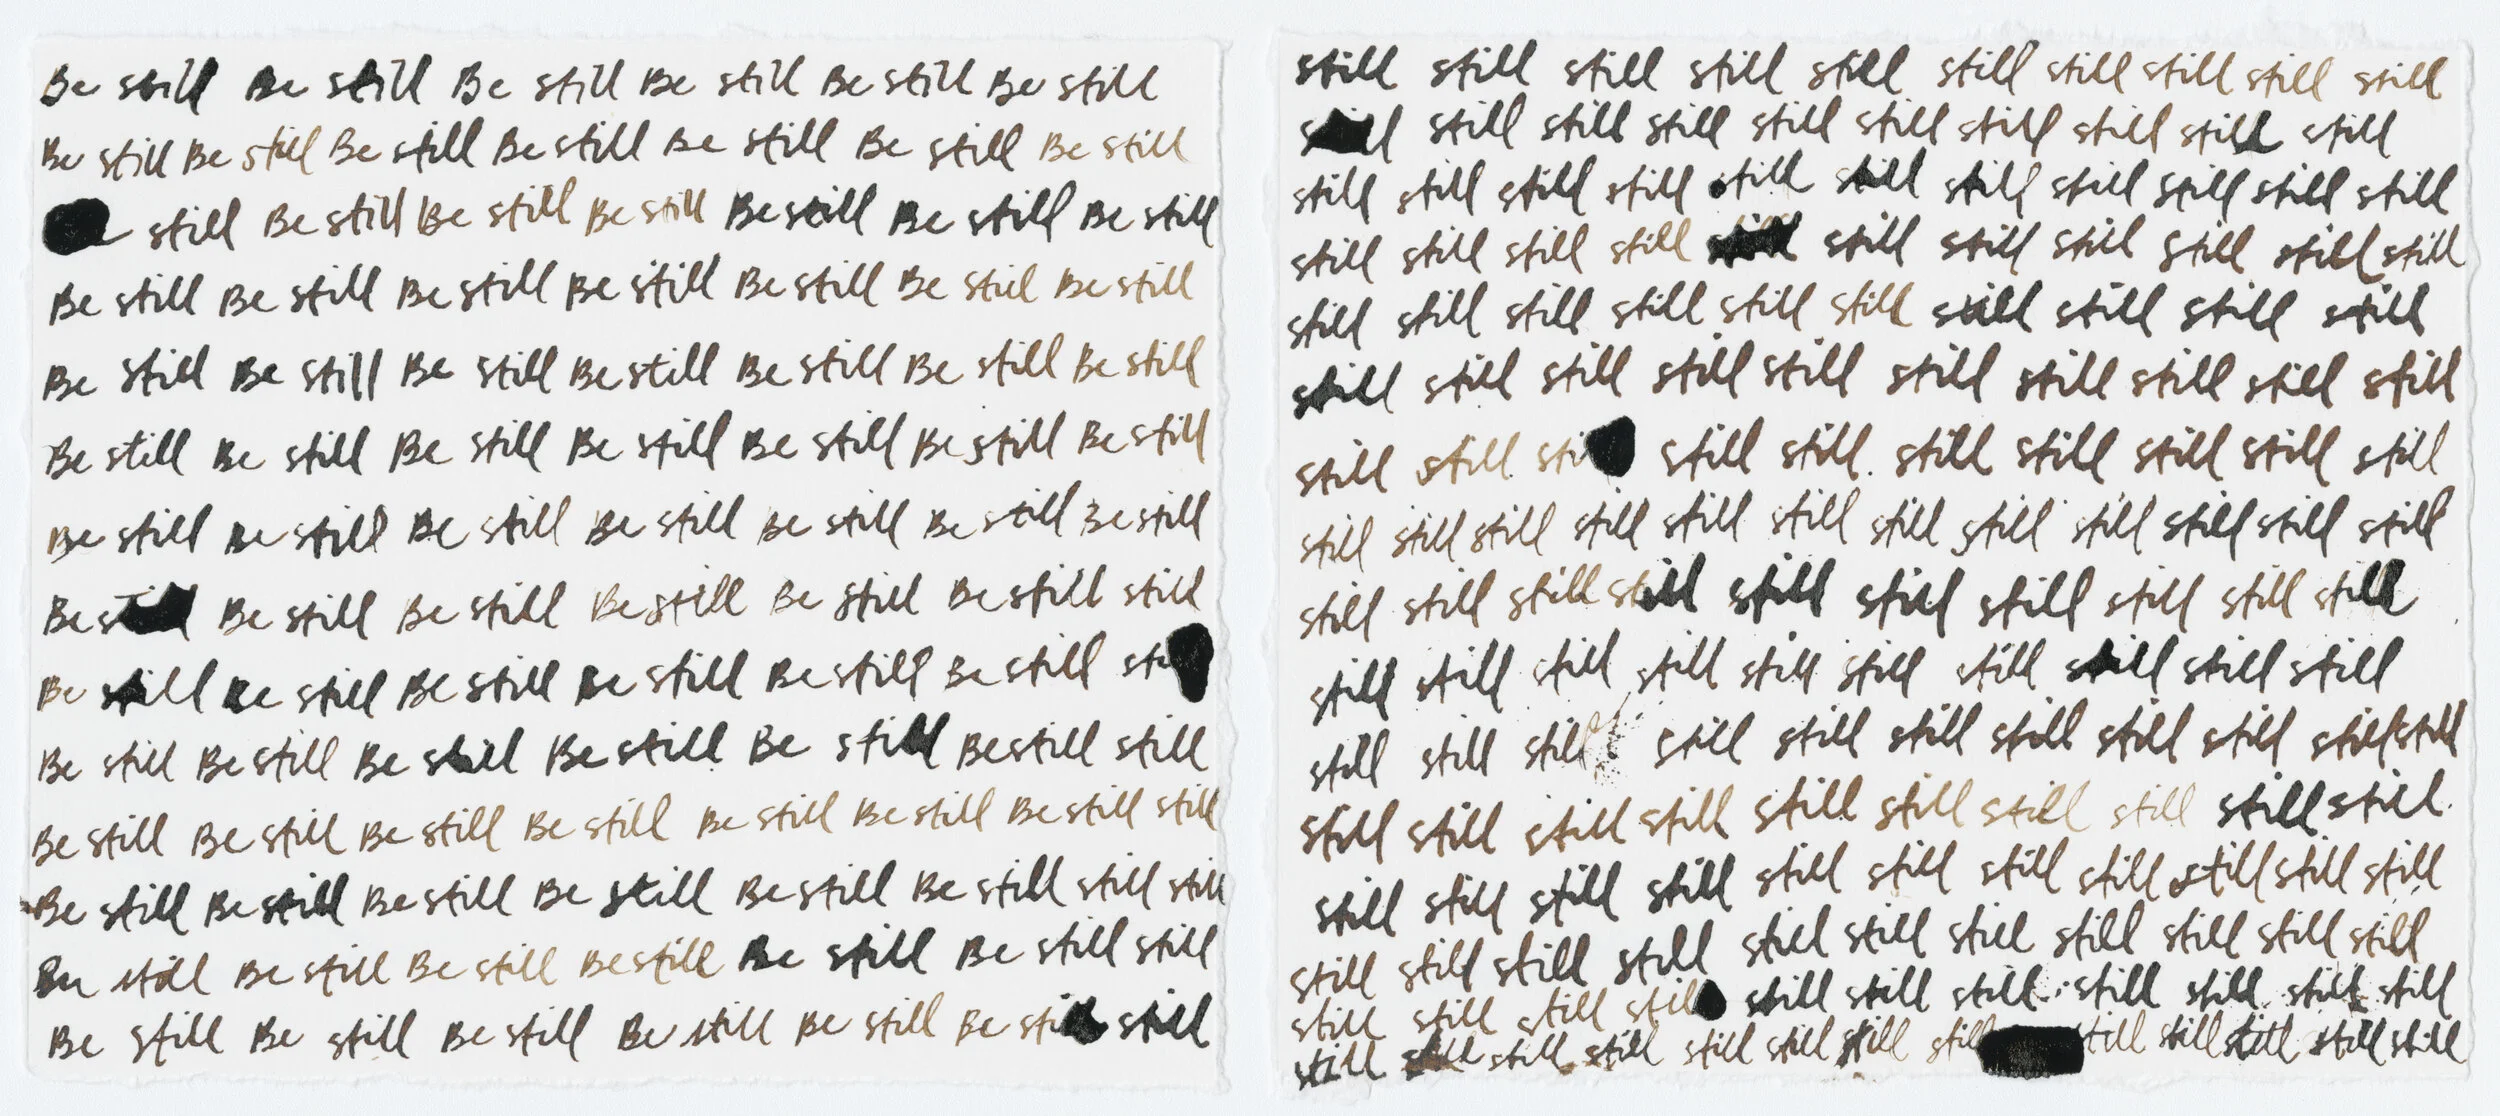 Be still Be still Be still Be still Be still Be still
Be still Be still Be still Be still Be still Be still Be still
still Be still Be still Be still Be still Be still Be still
Be still Be still Be still Be still Be still Be still Be still
Be still Be still Be still Be still Be still Be still Be still
Be still Be still Be still Be still Be still Be still Be still
Be still Be still Be still Be still Be still Be still Be still
Be Be still Be still Be still Be still Be still still
Be still Be still Be still Be still Be still Be still
Be still Be still Be still Be still Be still Be still still
Be still Be still Be still Be still Be still Be still Be still still
Be still Be still Be still Be still Be still Be still still still
Be still Be still Be still Be still Be still Be still still
Be still Be still Be still Be still Be still Be still still
still still still still still still still still still still
still still still still still still still still still
still still still still still still still still still still still
still still still still still still still still still still still
still still still still still still still still still still
still still still still still still still still still still
still still still still still still still still still
still still still still still still still still still still still still
still still still still still still still still still still
still still still still still still still still still still
still still still still still still still still still still still
still still still still still still still still still still
still still still still still still still still still still still
still still still still still still still still still still still
still still still still still still still still still still still
still still still still still still still still till still still still still